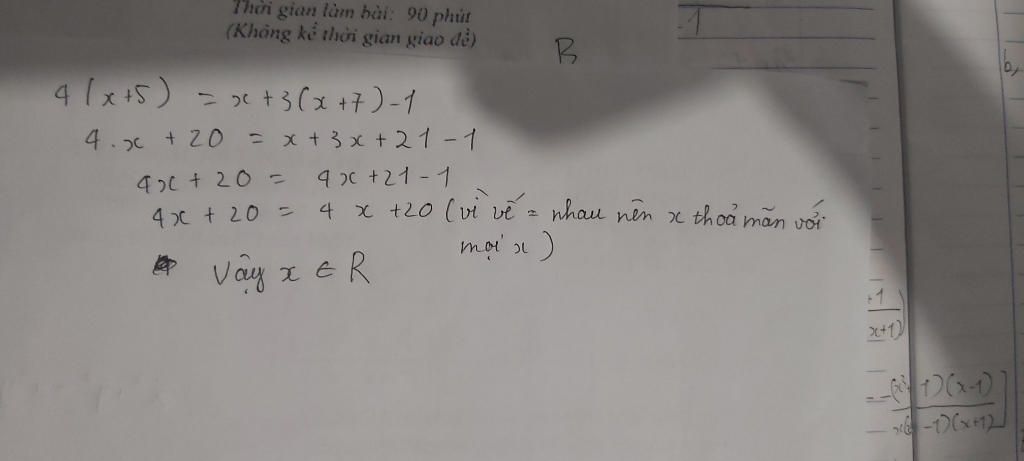 Thời gian làm bài: 90 phút
(Không kể thời gian giao đề)
-1
B
b,
4(x+5) = x+3(x+7)-1
4.x + 20 = x + 3x + 21 - 1
4x + 20 = 4x + 21 - 1
4x + 20 = 4 x + 20 (vì vế = nhau nên x thoả mãn với
mọi x)
Vậy x ∈ R
+1
x+1)
-1)(x-1)
-1)(x+1)